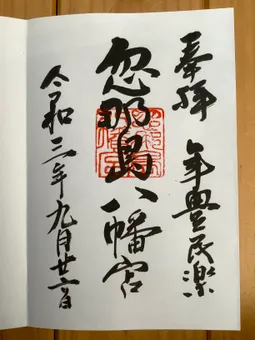 奉拝 年豊民楽
忽那島八幡宮
令和三年九月廿二日